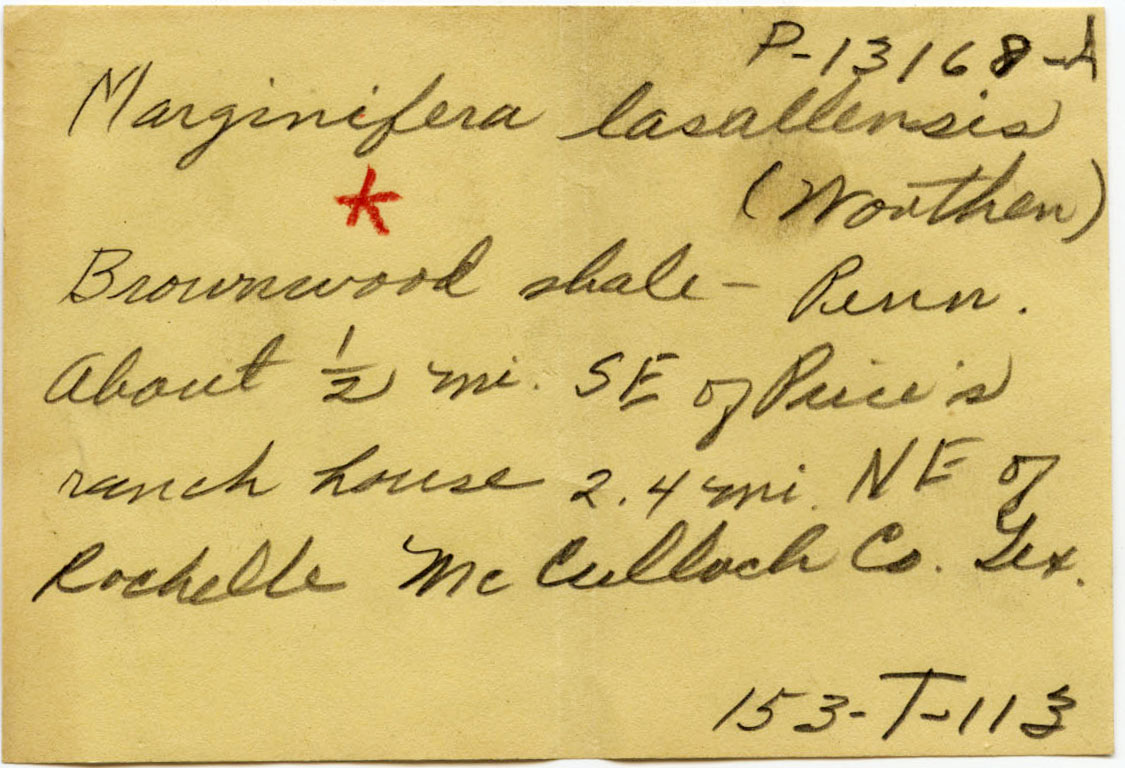 P-13168-A
Marginifera lasallensis
*
(Worthen)
Brownwood shale - Penn.
About 1/2 mi. SE of Price's
ranch house 2.4 mi. NE of
Rochelle McCulloch Co. Tex.
153-T-113